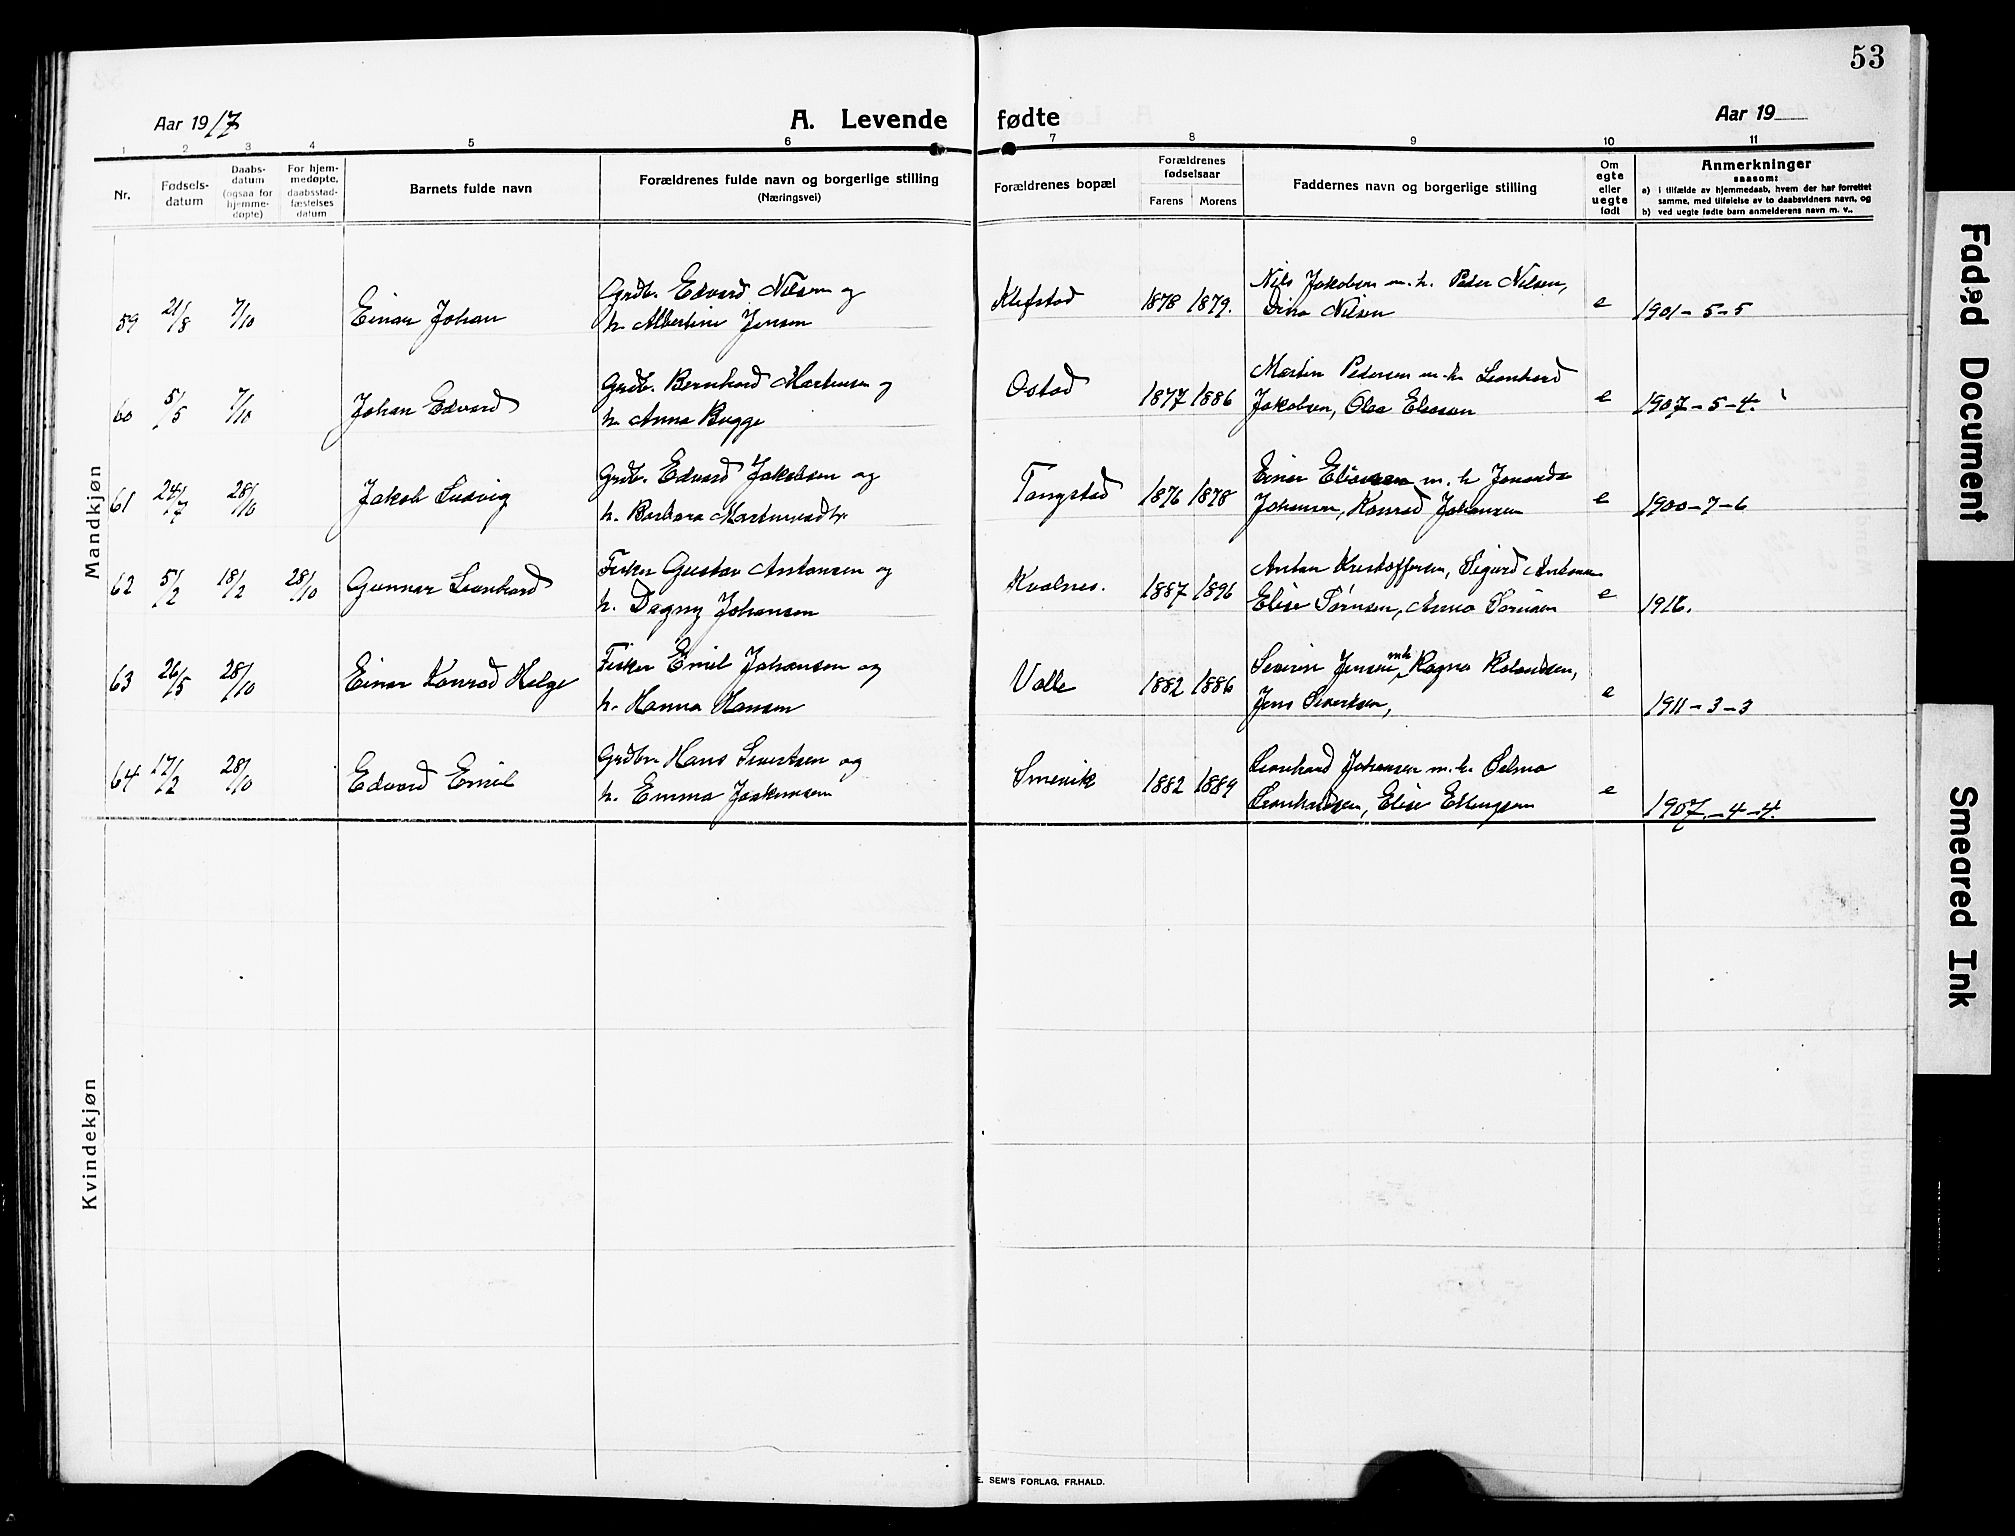 53
Aar 1917
A. Levende fødte
Aar 19
1 2 3 4 5 6 7 8 9 10 11
Nr.
Fødsels-
datum
Daabs-
datum
(ogsaa for
hjemme-
døpte)
For hjem-
medøpte.
daabsstad-
fæstelses
datum
Barnets fulde navn
Forældrenes fulde navn og borgerlige stilling
(Næringsvei)
Forældrenes bopæl
Forældrenes
fødselsaar
Farens Morens
Faddernes navn og borgerlige stilling
Om
egte
eller
uegte
født
Anmerkninger
saasom:
a) i tilfælde av hjemmedaab, hvem der har forrettet
samme, med tilføielse av to daabsvidners navn, og
b) ved uegte fødte barn anmelderens navn m. v..
Mandkjøn
59 21/8 7/10 Einar Johan
Grdb. Edvard Nilsen og
h. Albertine Jensen
Klefstad 1878 1879.
Nils Jakobsen m. h. Peder Nilsen,
Dina Nilsen
e 1901-5-5
60 5/5 7/10 Johan Edvard
Grdb. Bernhard Martinsen og
h. Anna Bugge
Ostad 1877 1886
Martin Pedersen m. h. Leonhard
Jakobsen, Olea Eliasen
e 1907-5-4.
61 24/7 28/10 Jakob Ludvig
Grdb. Edvard Jakobsen og
h. Barbara
Tangstad 1876 1878
Einar Eliassen m. h.
Johansen, Konrad Johansen
e 1900-7-6
62 5/2 18/2 28/10 Gunnar Leonhard
Fisker Gustav Antonsen og
h. Dagny Johansen
Kvalnes. 1887 1896
Anton Kristoffersen, Sigurd Antonsen
Elise Sørnsen, Anna
e 1916.
63 26/5 28/10 Einar Konrad Helge
Fisker Emil Johansen og
h. Hanna Hansen
Valle 1882 1886
Severin Jensen m h. Ragna Rolandsen,
Jens Sivertsen,
e 1911-3-3
64 17/2 28/10 Edvard Emil
Grdbr Hans Sivertsen og
h. Emma Joakimsen
Smevik 1882 1889
Leonhard Johansen m. h. Selma
Leonhardsen, Elise Ellingsen
e 1907-4-4.
Kvindekjøn
E. SEM'S FORLAG, FR.HALD.
Faded Document
Smeared Ink